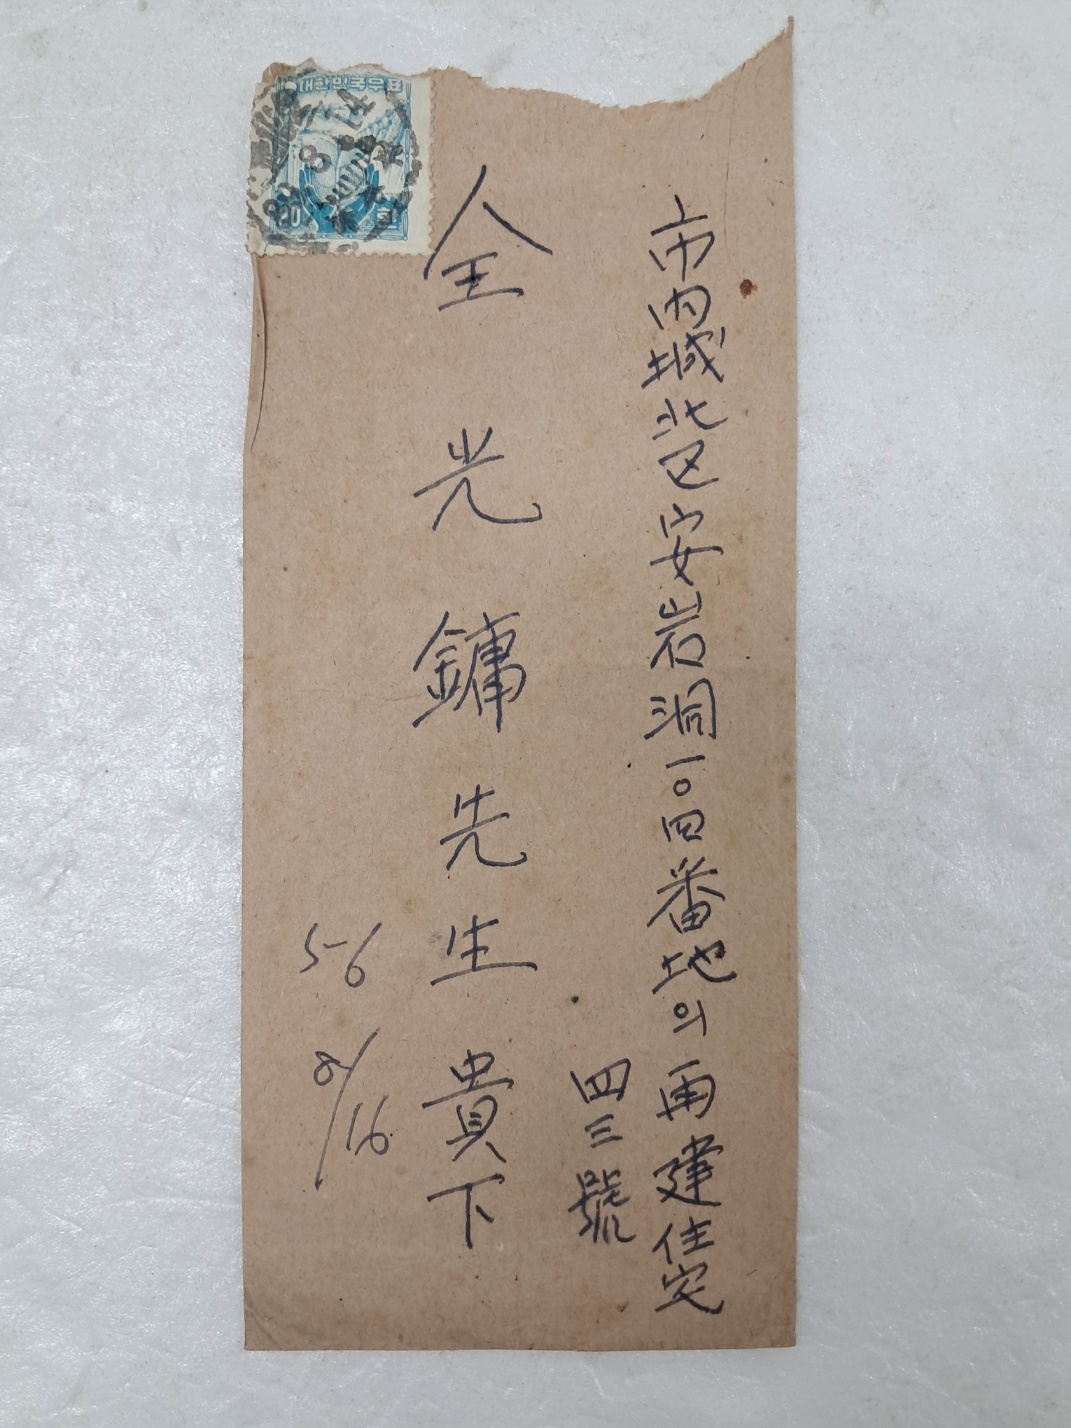 市内城北区安岩洞一〇四番地의再建住宅
四三號
全光鏞先生貴下
5-6
8/16
대한민국우표
20 환